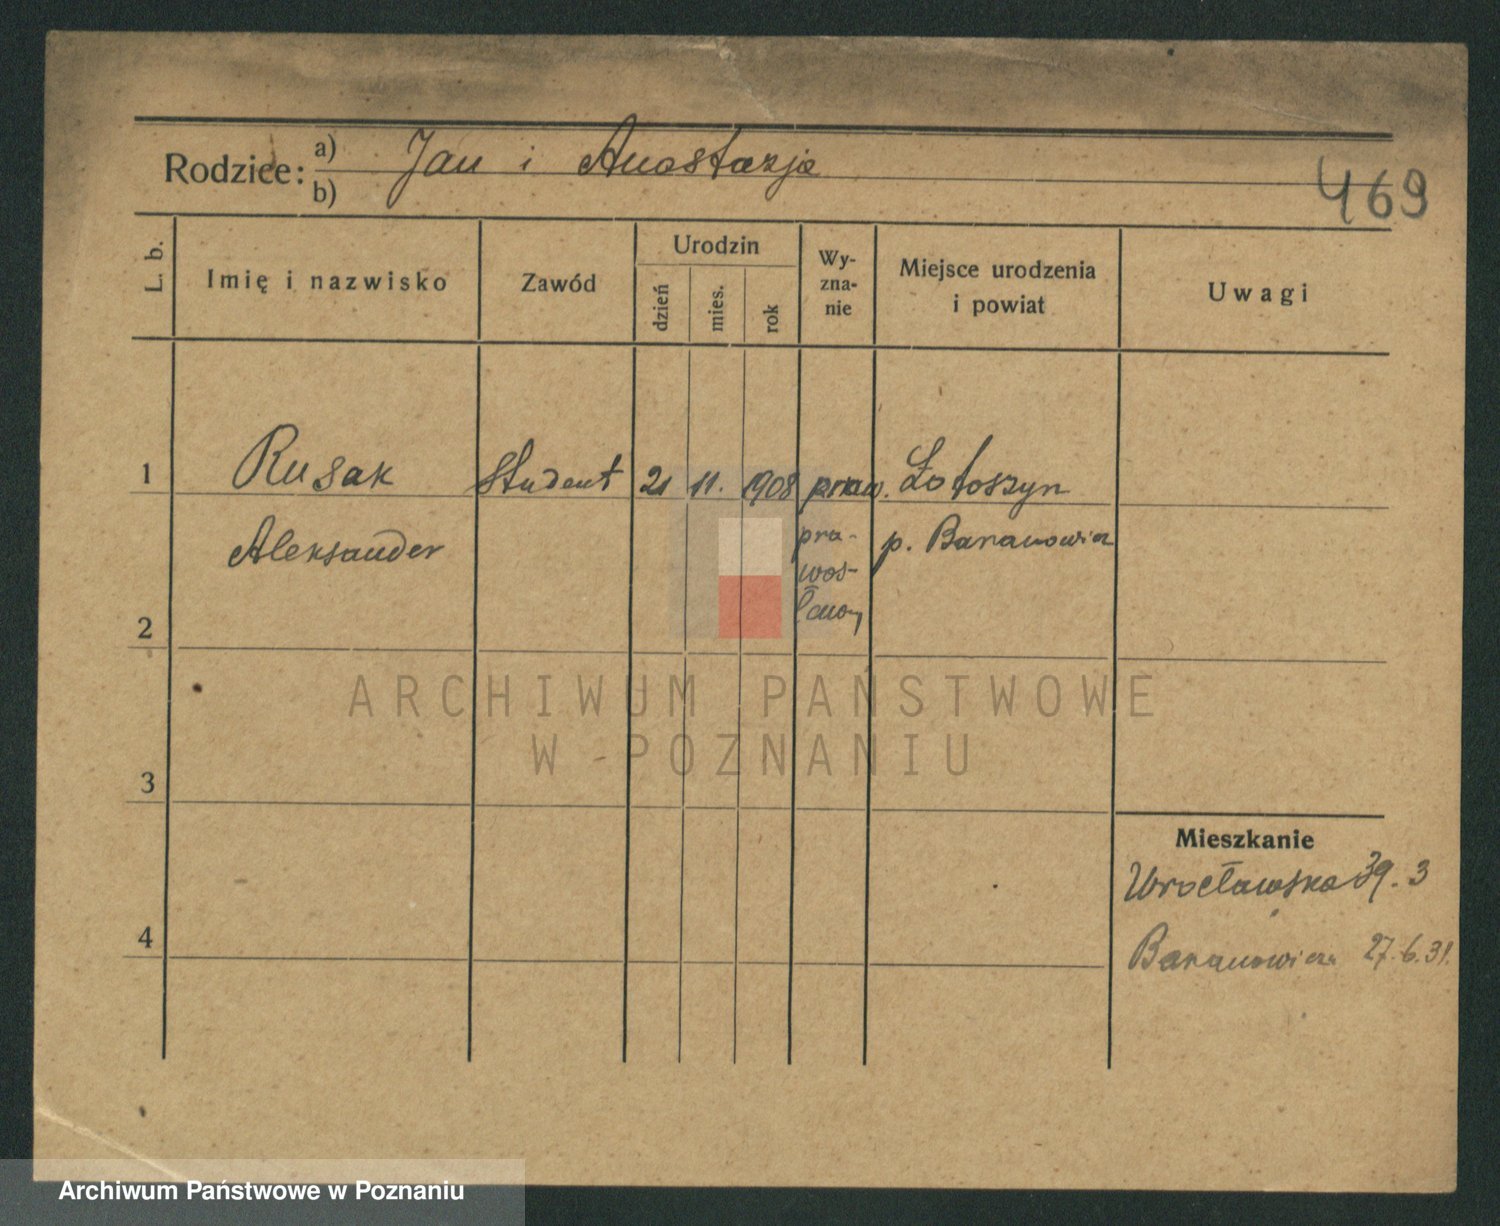 Rodzice: a) Jan i Anastazja
b)
469
L. b. Imię i nazwisko Zawód Urodzin dzień mies. rok Wy-zna-nie Miejsce urodzenia i powiat Uwagi
1 Rusak student 21 11. 1908 praw. Łotoszyn
Aleksander pra- p. Baranowicz
wos-
2 ławny
ARCHIWUM PAŃSTWOWE
W POZNANIU
3
Mieszkanie
Wrocławska 39. 3
4 Baranowicze 27.6.31.
Archiwum Państwowe w Poznaniu